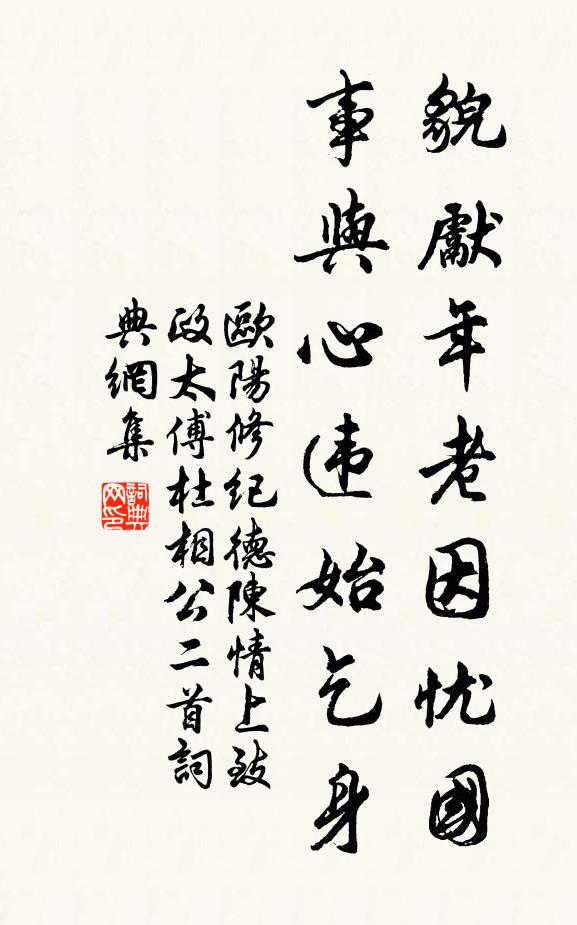 貌獻年老因忧國
事與心违始乞身
歐陽修紀德陳情上致
政太傅杜相公二首詞
典網集
詞典
网印